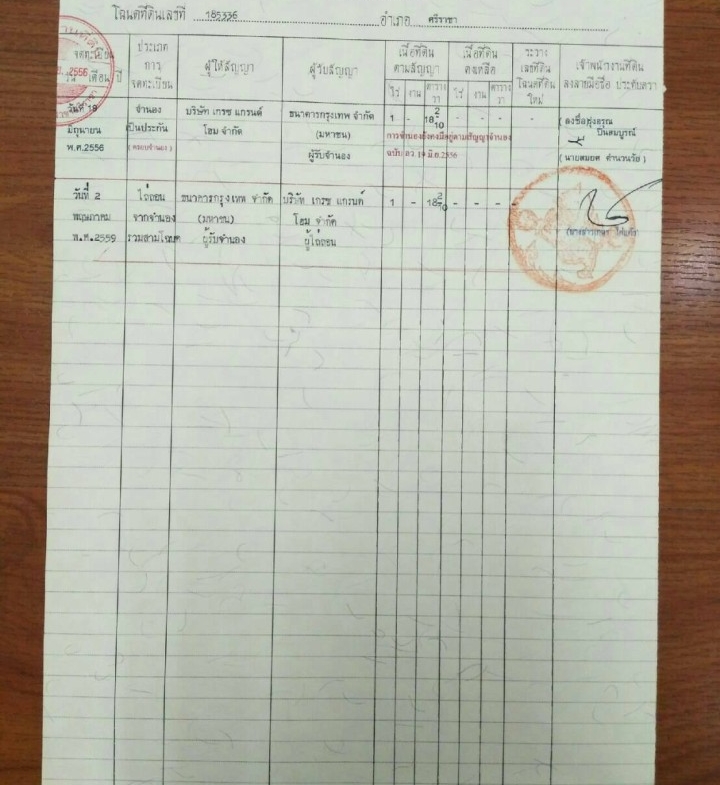 โฉนดที่ดินเลขที่ 185336 อำเภอ ศรีราชา
จดทะเบียน
วัน เดือน ปี
2556
ประเภท
การ
จดทะเบียน
ผู้ให้สัญญา
ผู้รับสัญญา
เนื้อที่ดิน
ตามสัญญา
ไร่ งาน ตารางวา
เนื้อที่ดิน
คงเหลือ
ไร่ งาน ตารางวา
ระวาง
เลขที่ดิน
โฉนดที่ดิน
ใหม่
เจ้าพนักงานที่ดิน
ลงลายมือชื่อ ประทับตรา
วันที่ 19
มิถุนายน
พ.ศ.2556
จำนอง
เป็นประกัน
( ครอบจำนอง )
บริษัท เกรซ แกรนด์
โฮม จำกัด
ธนาคารกรุงเทพ จำกัด
(มหาชน)
ผู้รับจำนอง
1 - 18 2/10 - - - -
การจำนองยังคงมีอยู่ตามสัญญาจำนอง
ฉบับลงว 19 มิ.ย.2556
( ลงชื่อรุ่งอรุณ
ปิ่นสมบูรณ์
วันที่ 2
พฤษภาคม
พ.ศ.2559
ไถ่ถอน
จากจำนอง
รวมสามโฉนด
ธนาคารกรุงเทพ จำกัด
(มหาชน)
ผู้รับจำนอง
บริษัท เกรซ แกรนด์
โฮม จำกัด
ผู้ไถ่ถอน
1 - 18 2/10 - - - -